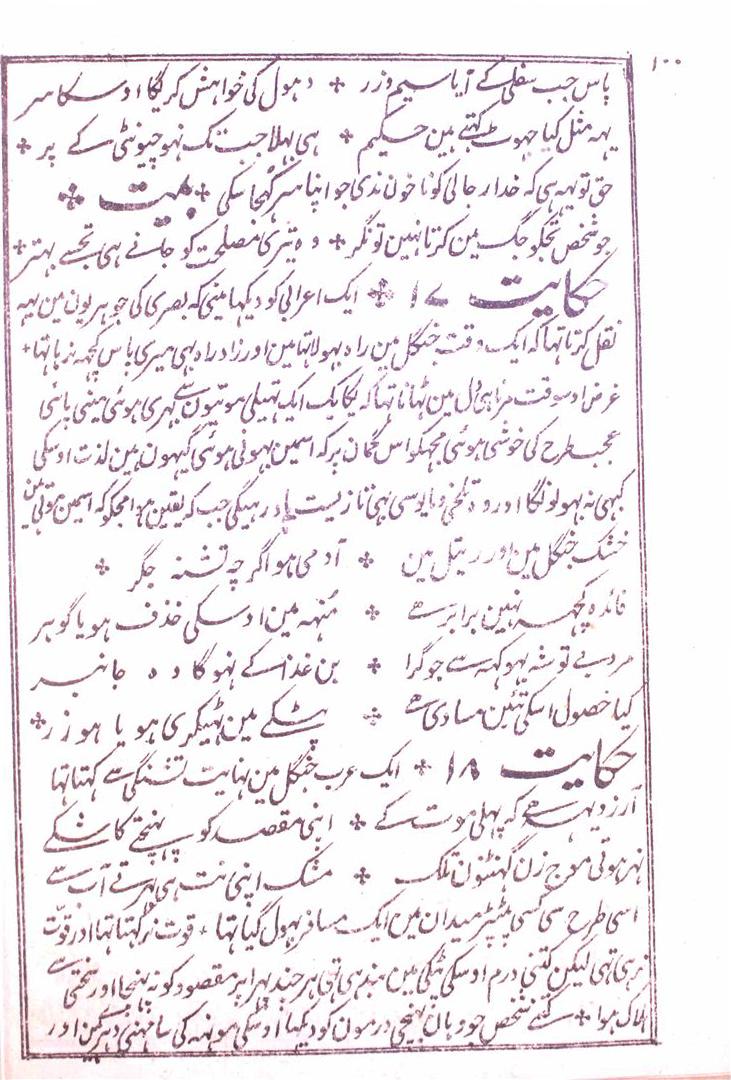 ۱۰۰
پاس جب سفلی کے آیا سیم و زر ٭ دھول کی خواہش کریگا اوسکا سر
یہہ مثل کیا جھوٹ کہتے ہین حکیم ٭ ہی بہلا جب تک نہو چیونٹی کے پر ٭
حق تو یہہ ہی کہ خدا رجالی کو ناخون ندی جو اپنا سر کھجا سکی ٭ بیت ٭
جو شخص تجکو جگ مین کرتا نہین تونگر ٭ وہ تیری مصلحت کو جانے ہی تجسے بہتر ٭
حکایت ۱۷ ٭ ایک اعرابی کو دیکہا مینی کہ بصری کی جوہریون مین یہہ
نقل کرتا تہا کہ ایک وقت جنگل مین راہ بہولا تہا مین اور زاد راہ بہی میری پاس کچہہ نرہا تہا ٭
غرض اوسوقت مرنا ہی دل مین ٹہانا تہا کہ یکایک ایک تہیلی موتیون سے بہری ہوئی مینی پائی
عجب طرح کی خوشی ہوئی مجہکو اس گمان پر کہ اسمین بہونی ہوئی گیہون ہین لذت اوسکی
کبہی نہ بہولونگا اور وہ تلخی و مایوسی بہی تا زیست یاد رہیگی جب کہ یقین ہوا مجکو کہ اسمین موتی ہین
خشک جنگل مین اور ریتل مین ٭ آدمی ہو اگرچہ تشنہ جگر ٭
فائدہ کچہہ نہین برابر ہے ٭ منہہ مین اوسکی خذف ہو یا گوہر
مرد بے توشہ بہوکہہ سے جو گرا ٭ بن غذا کے نہوگا وہ جانبر
کیا حصول اسکی تئین مساوی ہے ٭ پٹکے مین ٹہیکری ہو یا ہو زر ٭
حکایت ۱۸ ٭ ایک عرب جنگل مین نہایت تشنگی سے کہتا تہا
آرزو یہہ ہے کہ پہلی موت کے ٭ اپنی مقصد کو پہنچتے کاشکے
نہر ہوتی موج زن گہنٹون تلک ٭ مشک اپنی ہت ہی بہرتے آب سے
اسی طرح سی کسی پٹپڑ میدان مین ایک مسافر بہول گیا تہا ٭ قوت نرکہتا تہا اور قوّت
نرہی تہی لیکن کتنی درم اوسکی پٹکی مین بندہی تہی ہر چند پہرا پر مقصود کو نہ پہنچا اور سختی سے
ہلاک ہوا ٭ کتنے شخص جو وہان پہنچی درمون کو دیکہا اوسکی مونہہ کی سامہنی دہرے ہین اور